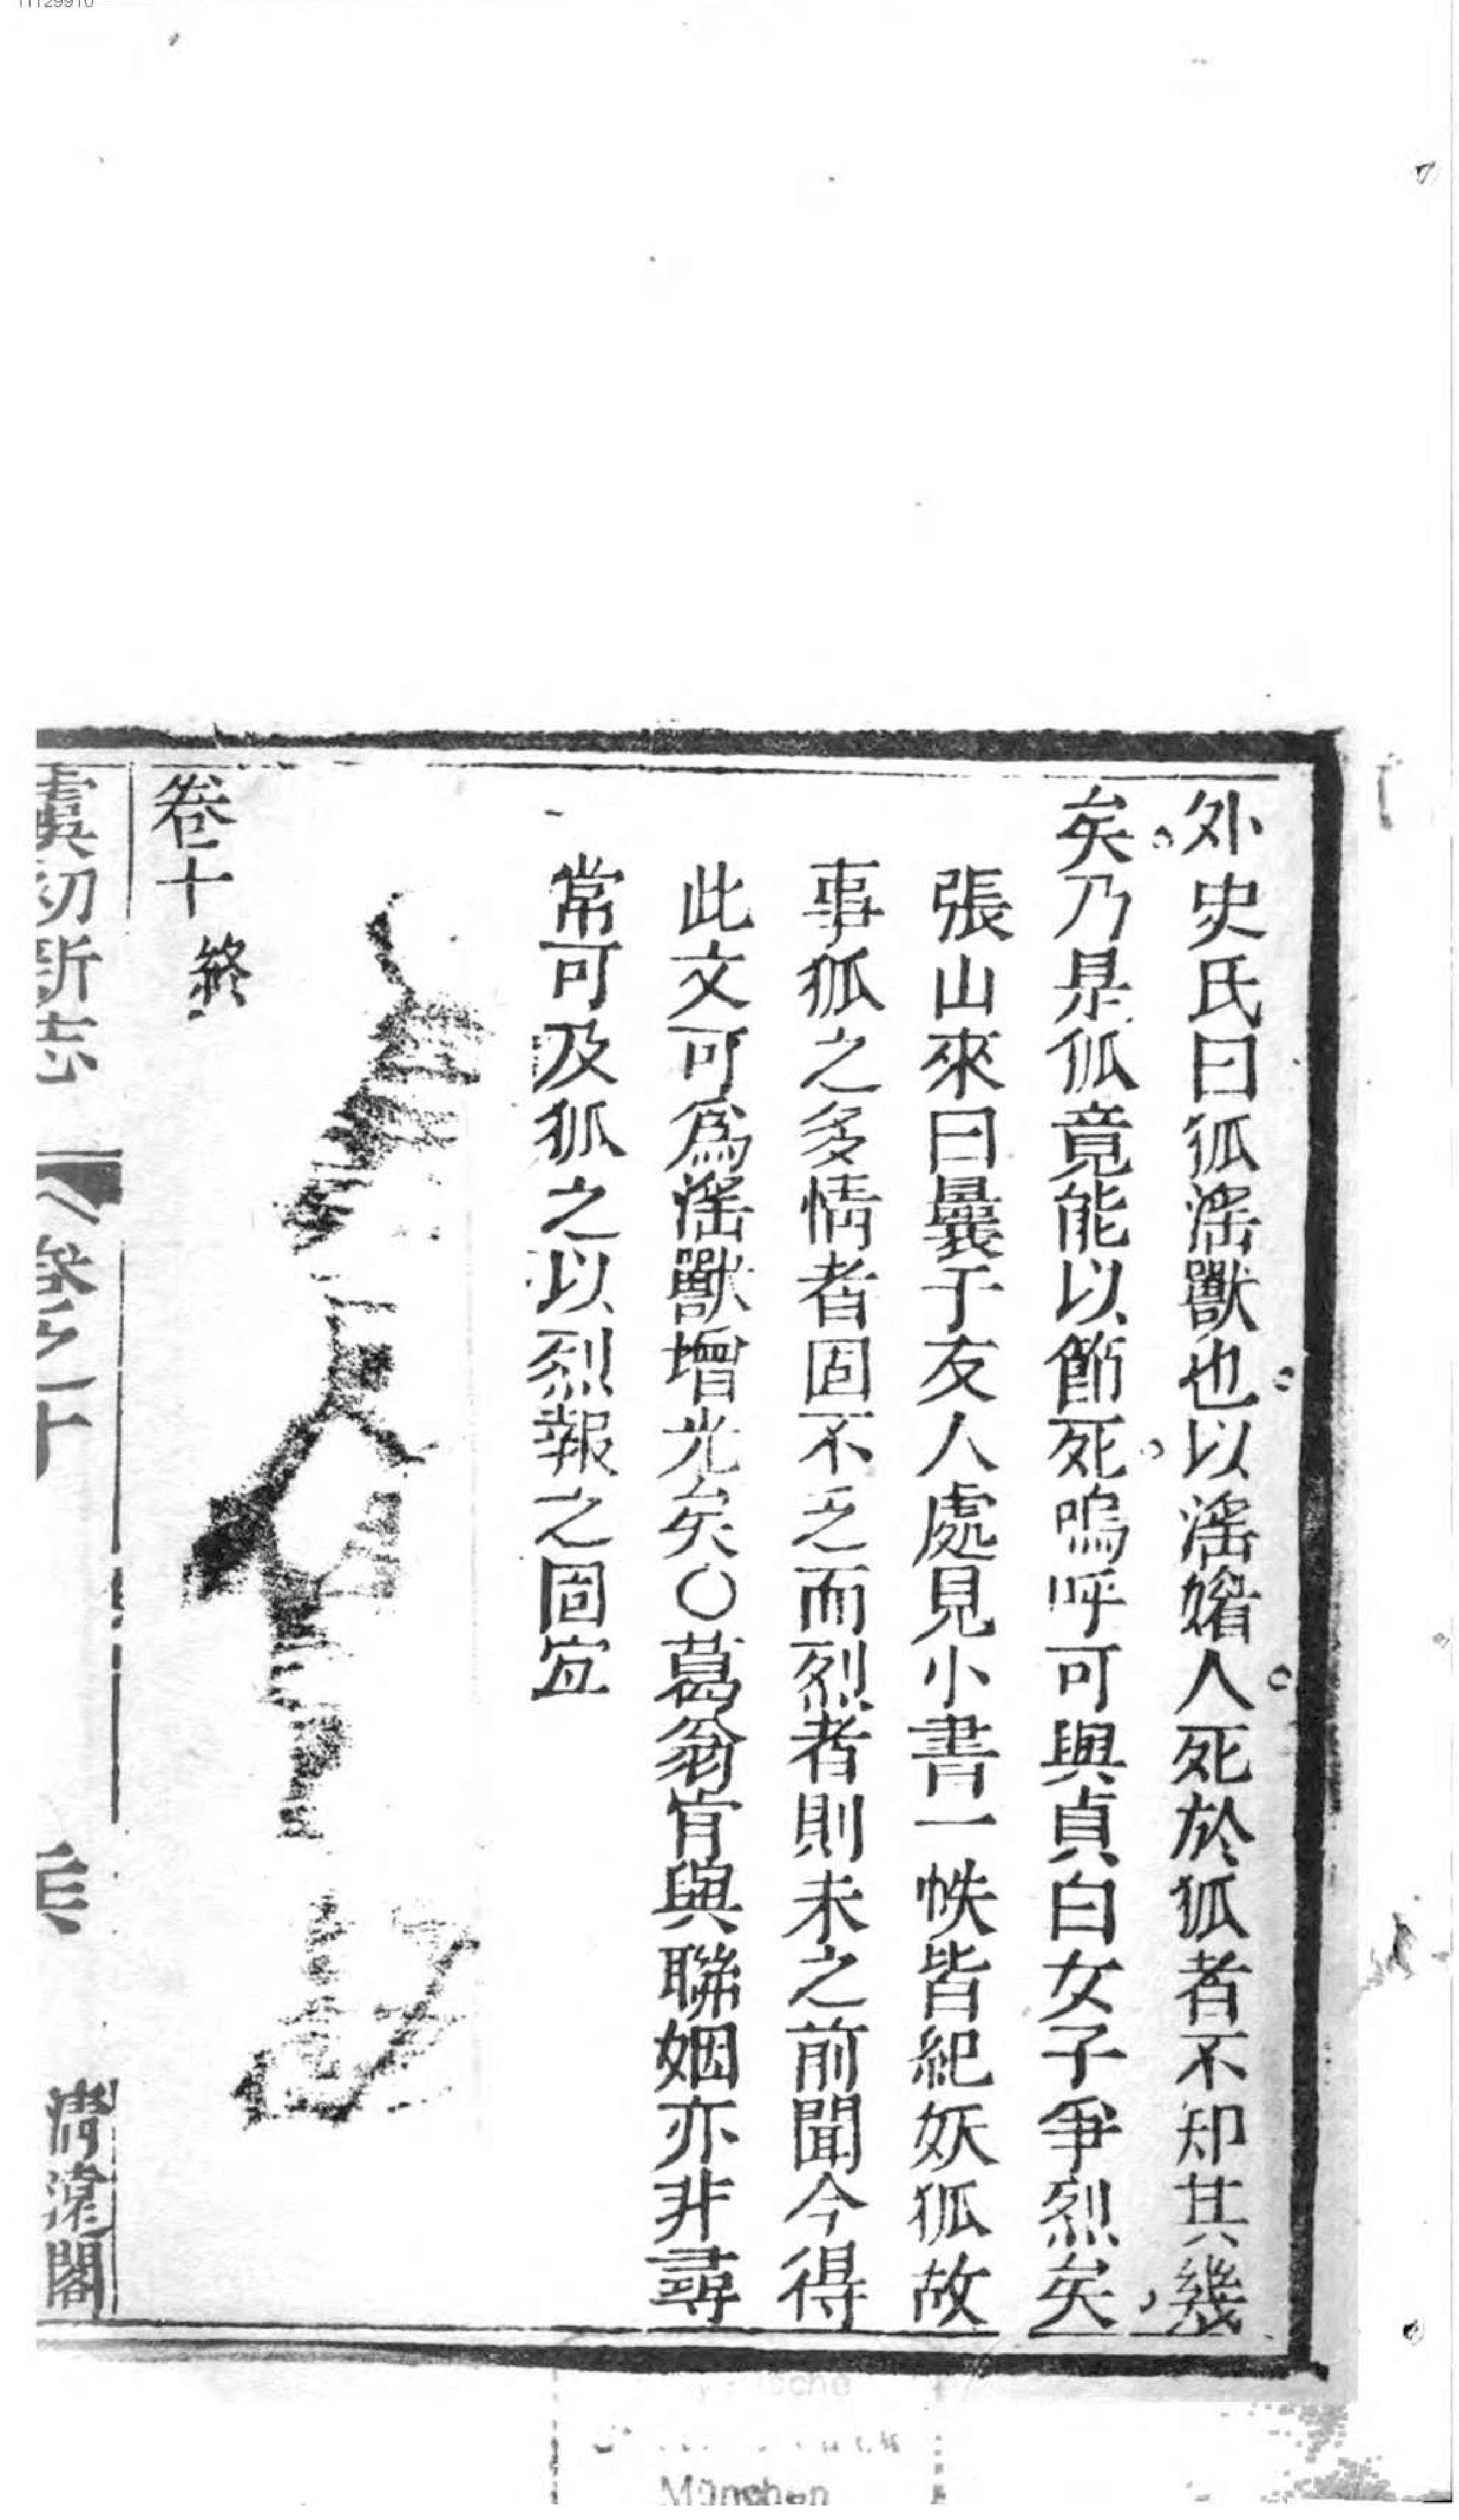 外史氏曰狐淫獸也以淫媚人死於狐者不知其幾
矣乃是狐竟能以節死嗚呼可與貞白女子爭烈矣
張山來曰曩于友人處見小書一帙皆紀妖狐故
事狐之多情者固不乏而烈者則未之前聞今得
此文可為淫獸增光矣〇葛翁肯與聯姻亦非尋
常可及狐之以烈報之固宜
卷十 終
虞初新志 卷之十
清滄閣
München
11129910